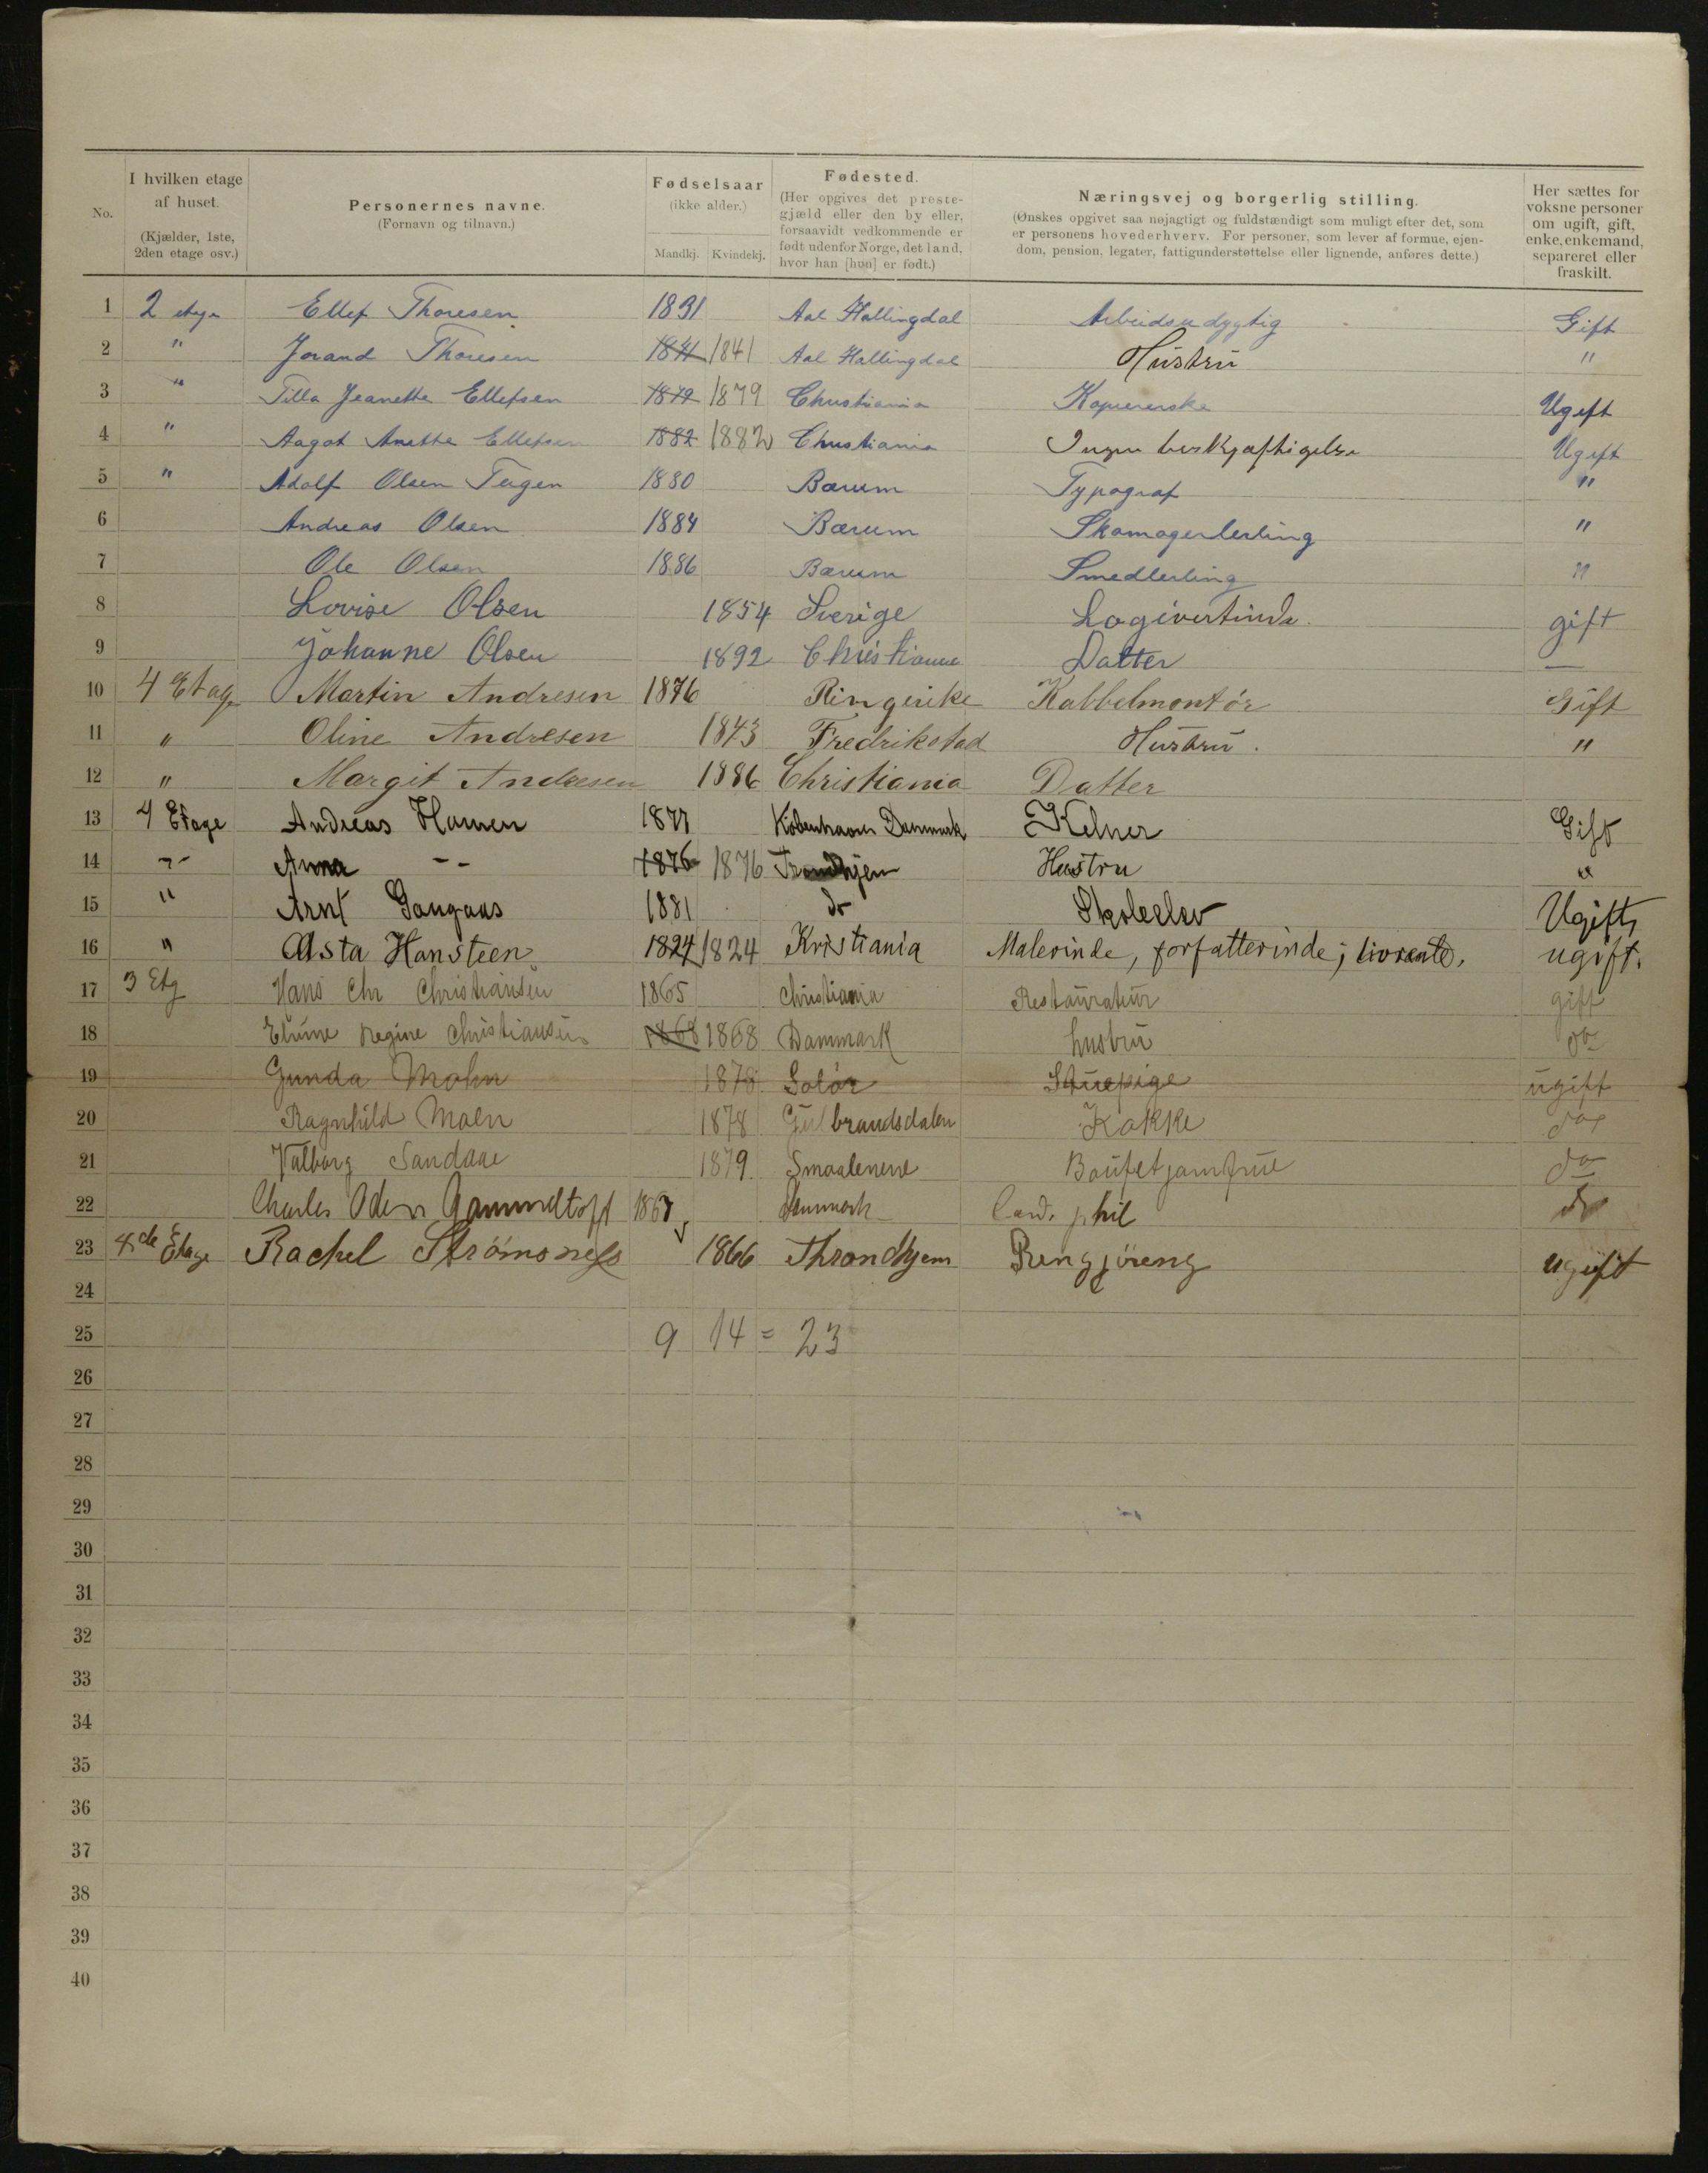 No.
I hvilken etage af huset. (Kjælder, 1ste, 2den etage osv.)
Personernes navne. (Fornavn og tilnavn.)
Fødselsaar (ikke alder.) Mandkj. Kvindekj.
Fødested. (Her opgives det prestegjæld eller den by eller, forsaavidt vedkommende er født udenfor Norge, det land, hvor han [hun] er født.)
Næringsvej og borgerlig stilling. (Ønskes opgivet saa nøjagtigt og fuldstændigt som muligt efter det, som er personens hovederhverv. For personer, som lever af formue, ejendom, pension, legater, fattigunderstøttelse eller lignende, anføres dette.)
Her sættes for voksne personer om ugift, gift, enke, enkemand, separeret eller fraskilt.
1 2 etage Ellef Thoresen 1831 Aal Hallingdal Arbeidsudygtig Gift
2 " Jorand Thoresen 1841 1841 Aal Hallingdal Hustru "
3 " Tilla Jeanette Ellefsen 1879 1879 Christiania Kopiererske Ugift
4 " Aagot Anette Ellefsen 1882 1882 Christiania Ingen beskjæftigelse Ugift
5 " Adolf Olsen Tagen 1880 Bærum Typograf "
6 Andreas Olsen 1884 Bærum Skomagerlerling "
7 Ole Olsen 1886 Bærum Smedlerling "
8 Lovise Olsen 1854 Sverige Logivertinde. gift
9 Johanne Olsen 1892 Christiania Datter —
10 4 Etage Martin Andresen 1876 Ringerike Kabbelmontör Gift
11 " Oline Andresen 1843 Fredrikstad Hustru. "
12 " Margit Andresen 1886 Christiania Datter
13 4 Etage Andreas Hansen 1877 Köbenhavn Danmark Kelner Gift
14 " Anna -- 1876 1876 Trondhjem Hustru "
15 " Arnt Gangaas 1881 do Skoleelev Ugift
16 " Asta Hansteen 1824 1824 Kristiania Malerinde, forfatterinde; livrente, ugift.
17 3 Etg Hans Chr Christiansen 1865 Christiania Restauratør gift
18 Regine Christiansen 1868 1868 Danmark hustru do
19 Gunda Mohn 1878 Solör Stuepige ugift
20 Ragnhild Moen 1878 Gulbrandsdalen Kokke do
21 Valborg Sandaae 1879. Smaalenene Boufetjomfrue do
22 Charles Oden Gammeltoft 1867 Danmark Cand. phil do
23 4de Etage Rachel Strömsness 1866 Throndhjem Rengjöreng ugift
24
25 9 14 = 23
26
27
28
29
30
31
32
33
34
35
36
37
38
39
40